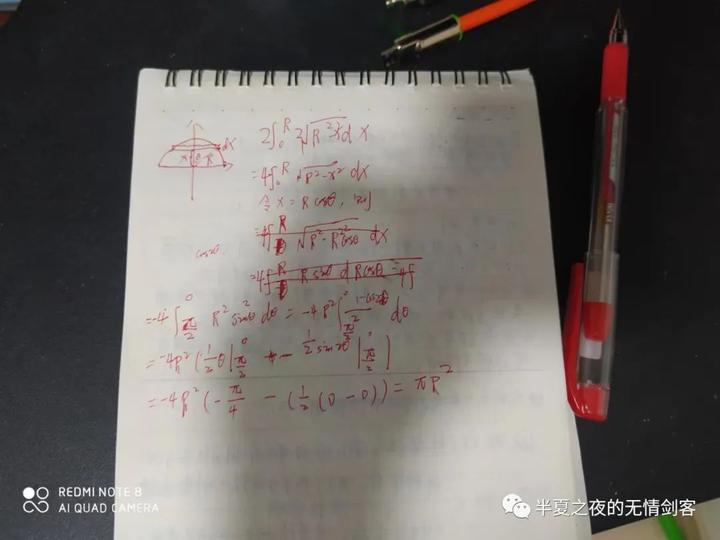 dx
x θ R
2∫₀ᴿ 2√(R²-x²) dx
=4∫₀ᴿ √(R²-x²) dx
令 x = R cosθ, 则
=4∫ R 0 √(R²-R²cos²θ) dx
cos2θ
=4∫ R 0 R sinθ d R cosθ = 4∫
=-4∫_{π/2}^{0} R² sin²θ dθ = -4R² ∫_{π/2}^{0} (1-cos2θ)/2 dθ
=-4R² (½θ|_{π/2}^{0} - ½ sin2θ|_{π/2}^{0})
=-4R² (-π/4 - (½(0-0)) = πR²
REDMI NOTE 8
AI QUAD CAMERA
半夏之夜的无情剑客